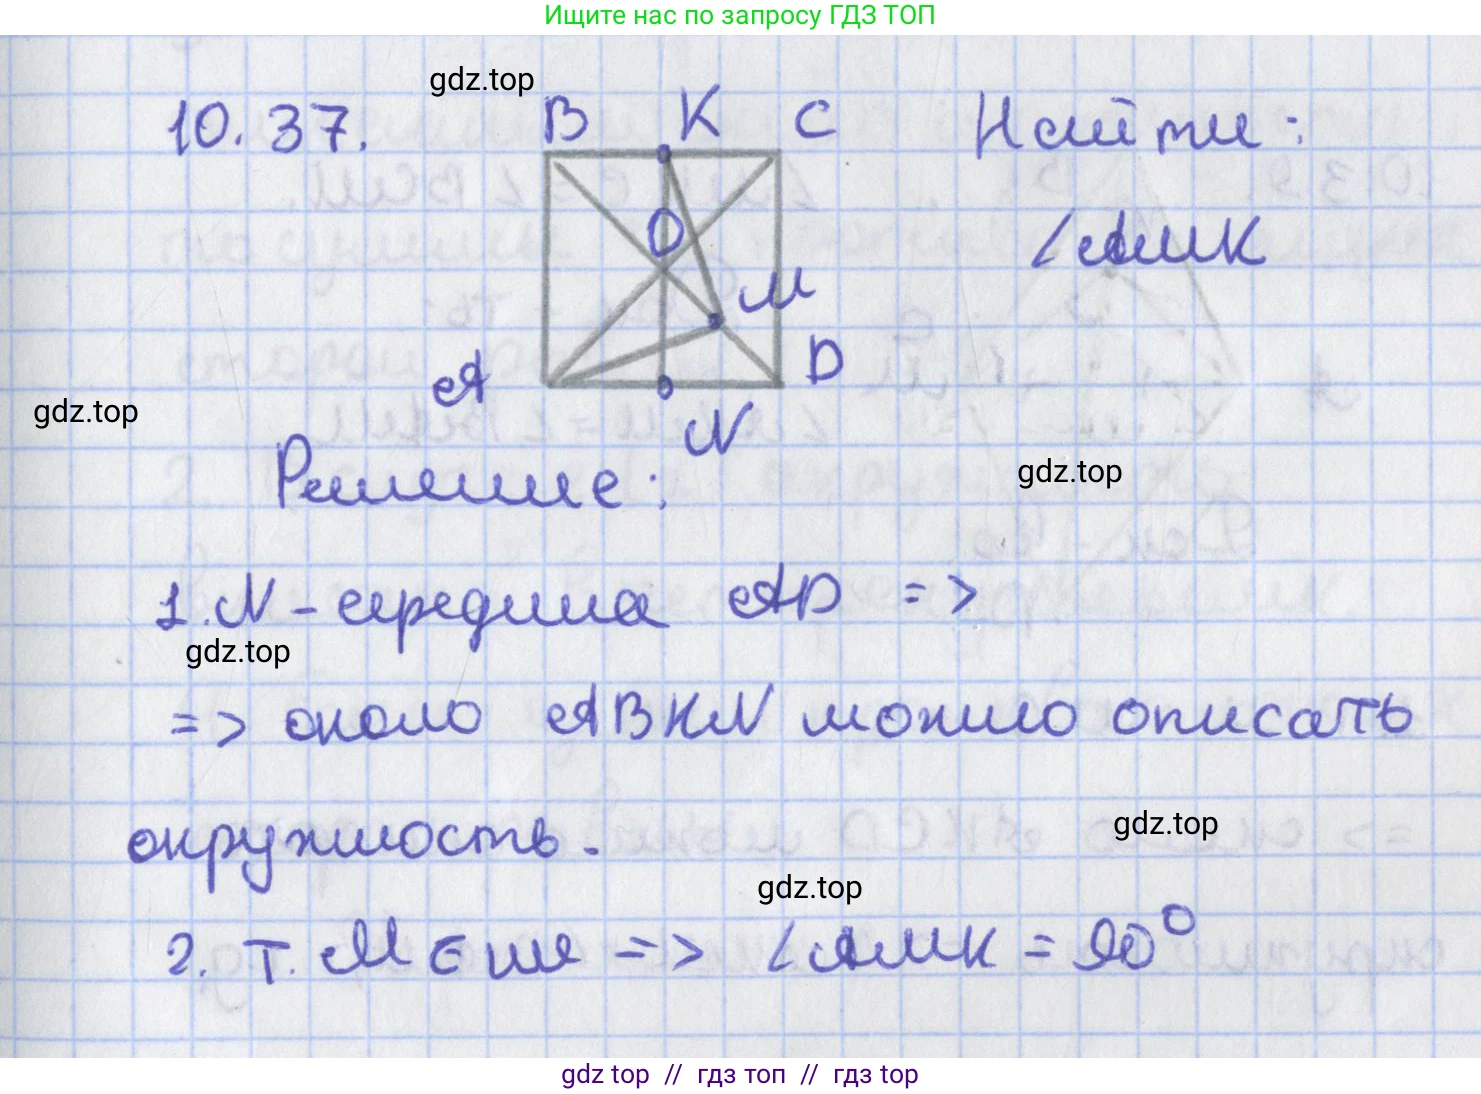 Ищите нас по запросу ГДЗ ТОП
gdz.top
10.37.
B K C
Найти:
O
∠AMK
M
A
D
gdz.top
N
gdz.top
Решение:
1. N - середина AD =>
gdz.top
=> около ABKN можно описать
окружность.
gdz.top
gdz.top
2. т. M ∈ => ∠AMK = 90°
gdz top // гдз топ // гдз top